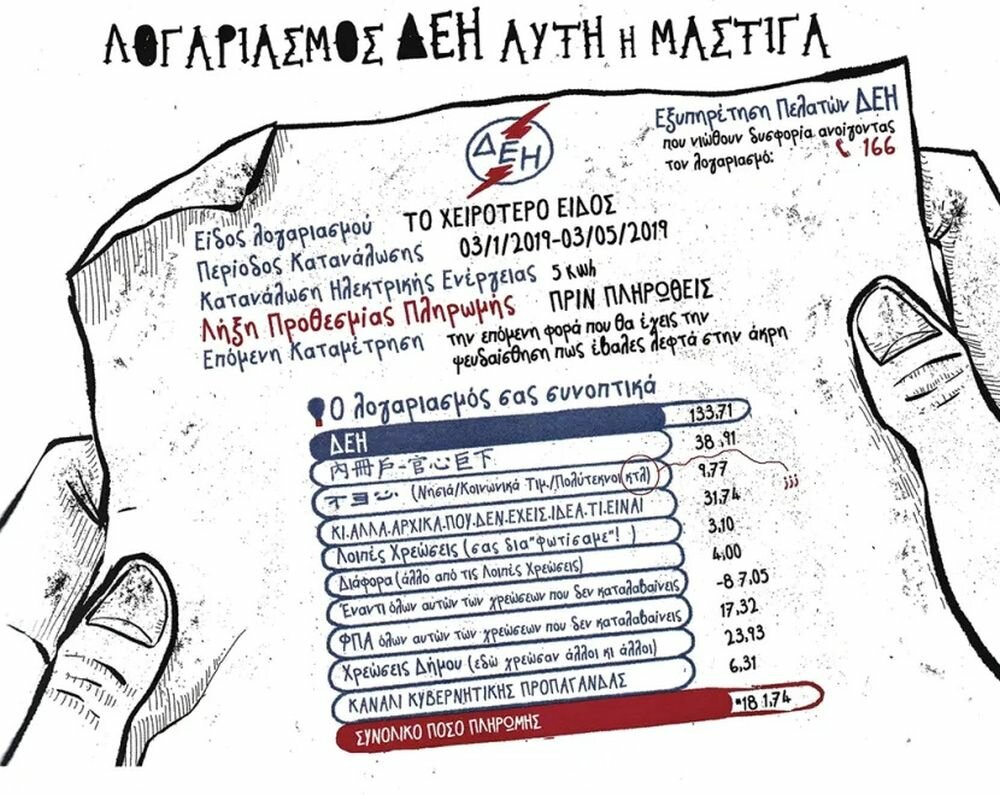 ΛΟΓΑΡΙΑΣΜΟΣ ΔΕΗ ΑΥΤΗ Η ΜΑΣΤΙΓΑ
Εξυπηρέτηση Πελατών ΔΕΗ
που νιώθουν δυσφορία ανοίγοντας
τον λογαριασμό: 166
ΔΕΗ
Είδος λογαριασμού ΤΟ ΧΕΙΡΟΤΕΡΟ ΕΙΔΟΣ
Περίοδος Κατανάλωσης 03/1/2019-03/05/2019
Κατανάλωση Ηλεκτρικής Ενέργειας 5 κwh
Λήξη Προθεσμίας Πληρωμής ΠΡΙΝ ΠΛΗΡΩΘΕΙΣ
Επόμενη Καταμέτρηση την επόμενη φορά που θα έχεις την
ψευδαίσθηση πως έβαλες λεφτά στην άκρη
Ο λογαριασμός σας συνοπτικά
ΔΕΗ 133,71
內冊戶-官心巨下 38,91
(Νησιά/Κοινωνικά Τιμ./Πολύτεκνοι κτλ) 9,77 ;;;
ΚΙ.ΑΛΛΑ.ΑΡΧΙΚΑ.ΠΟΥ.ΔΕΝ.ΕΧΕΙΣ.ΙΔΕΑ.ΤΙ.ΕΙΝΑΙ 31,74
Λοιπές Χρεώσεις (σας δια"φωτίσαμε"! ) 3,10
Διάφορα (άλλο από τις Λοιπές Χρεώσεις) 4,00
Έναντι όλων αυτών των χρεώσεων που δεν καταλαβαίνεις -87,05
ΦΠΑ όλων αυτών των χρεώσεων που δεν καταλαβαίνεις 17,32
Χρεώσεις Δήμου (εδώ χρεώσαν άλλοι κι άλλοι) 23,93
ΚΑΝΑΛΙ ΚΥΒΕΡΝΗΤΙΚΗΣ ΠΡΟΠΑΓΑΝΔΑΣ 6,31
ΣΥΝΟΛΙΚΟ ΠΟΣΟ ΠΛΗΡΩΜΗΣ *181,74